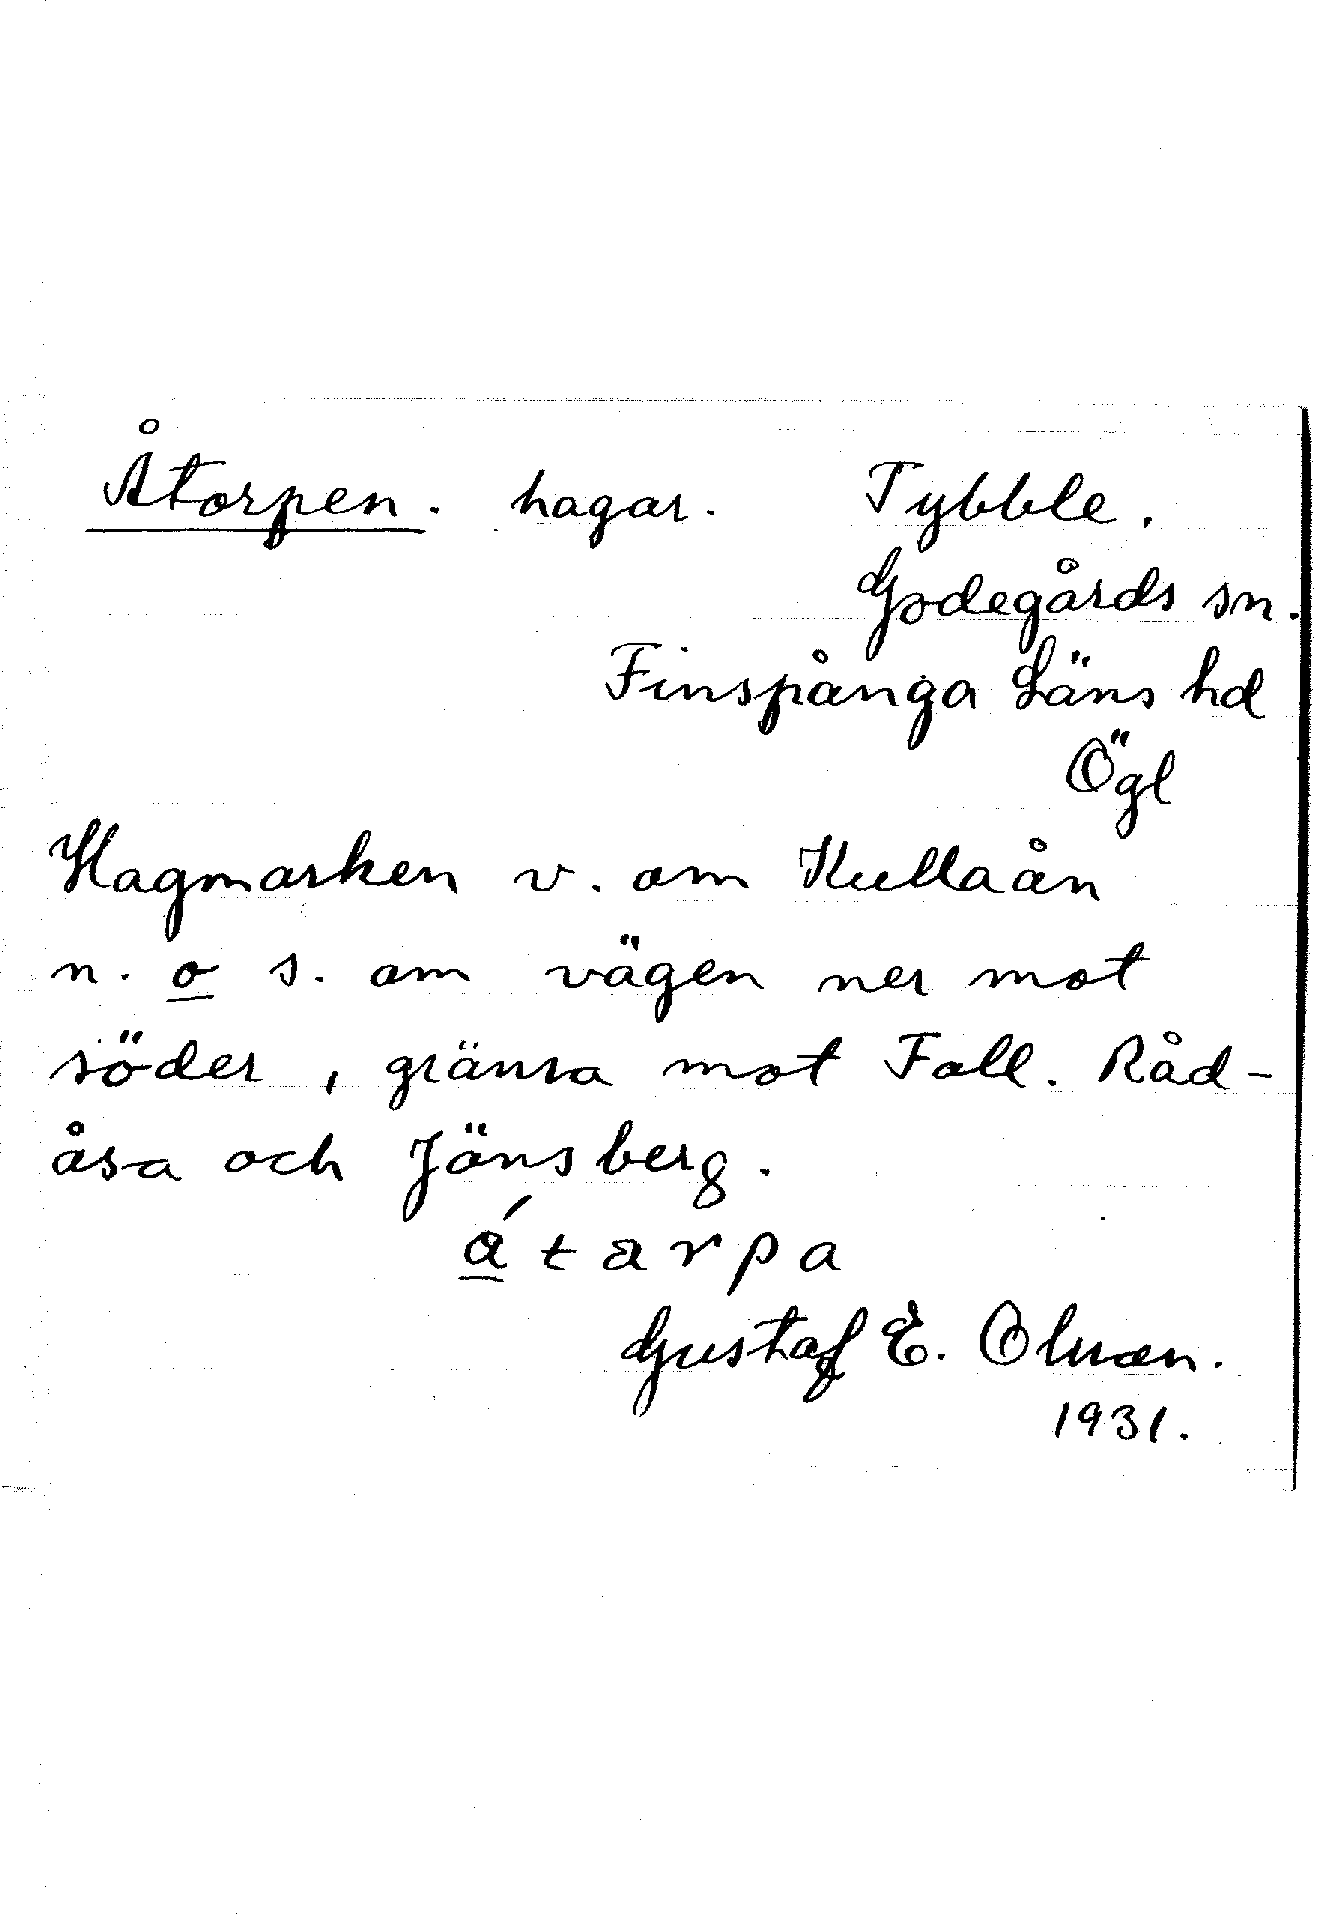 Åtorpen. hagar. Tybble.
Godegårds sn.
Finspånga Läns hd
Ögl
Hagmarken v. om Kullaån
n. o s. om vägen ner mot
söder, gränsa mot Fall. Råd-
åsa och Jönsberg.
á t a r p a
Gustaf E. Olsson.
1931.